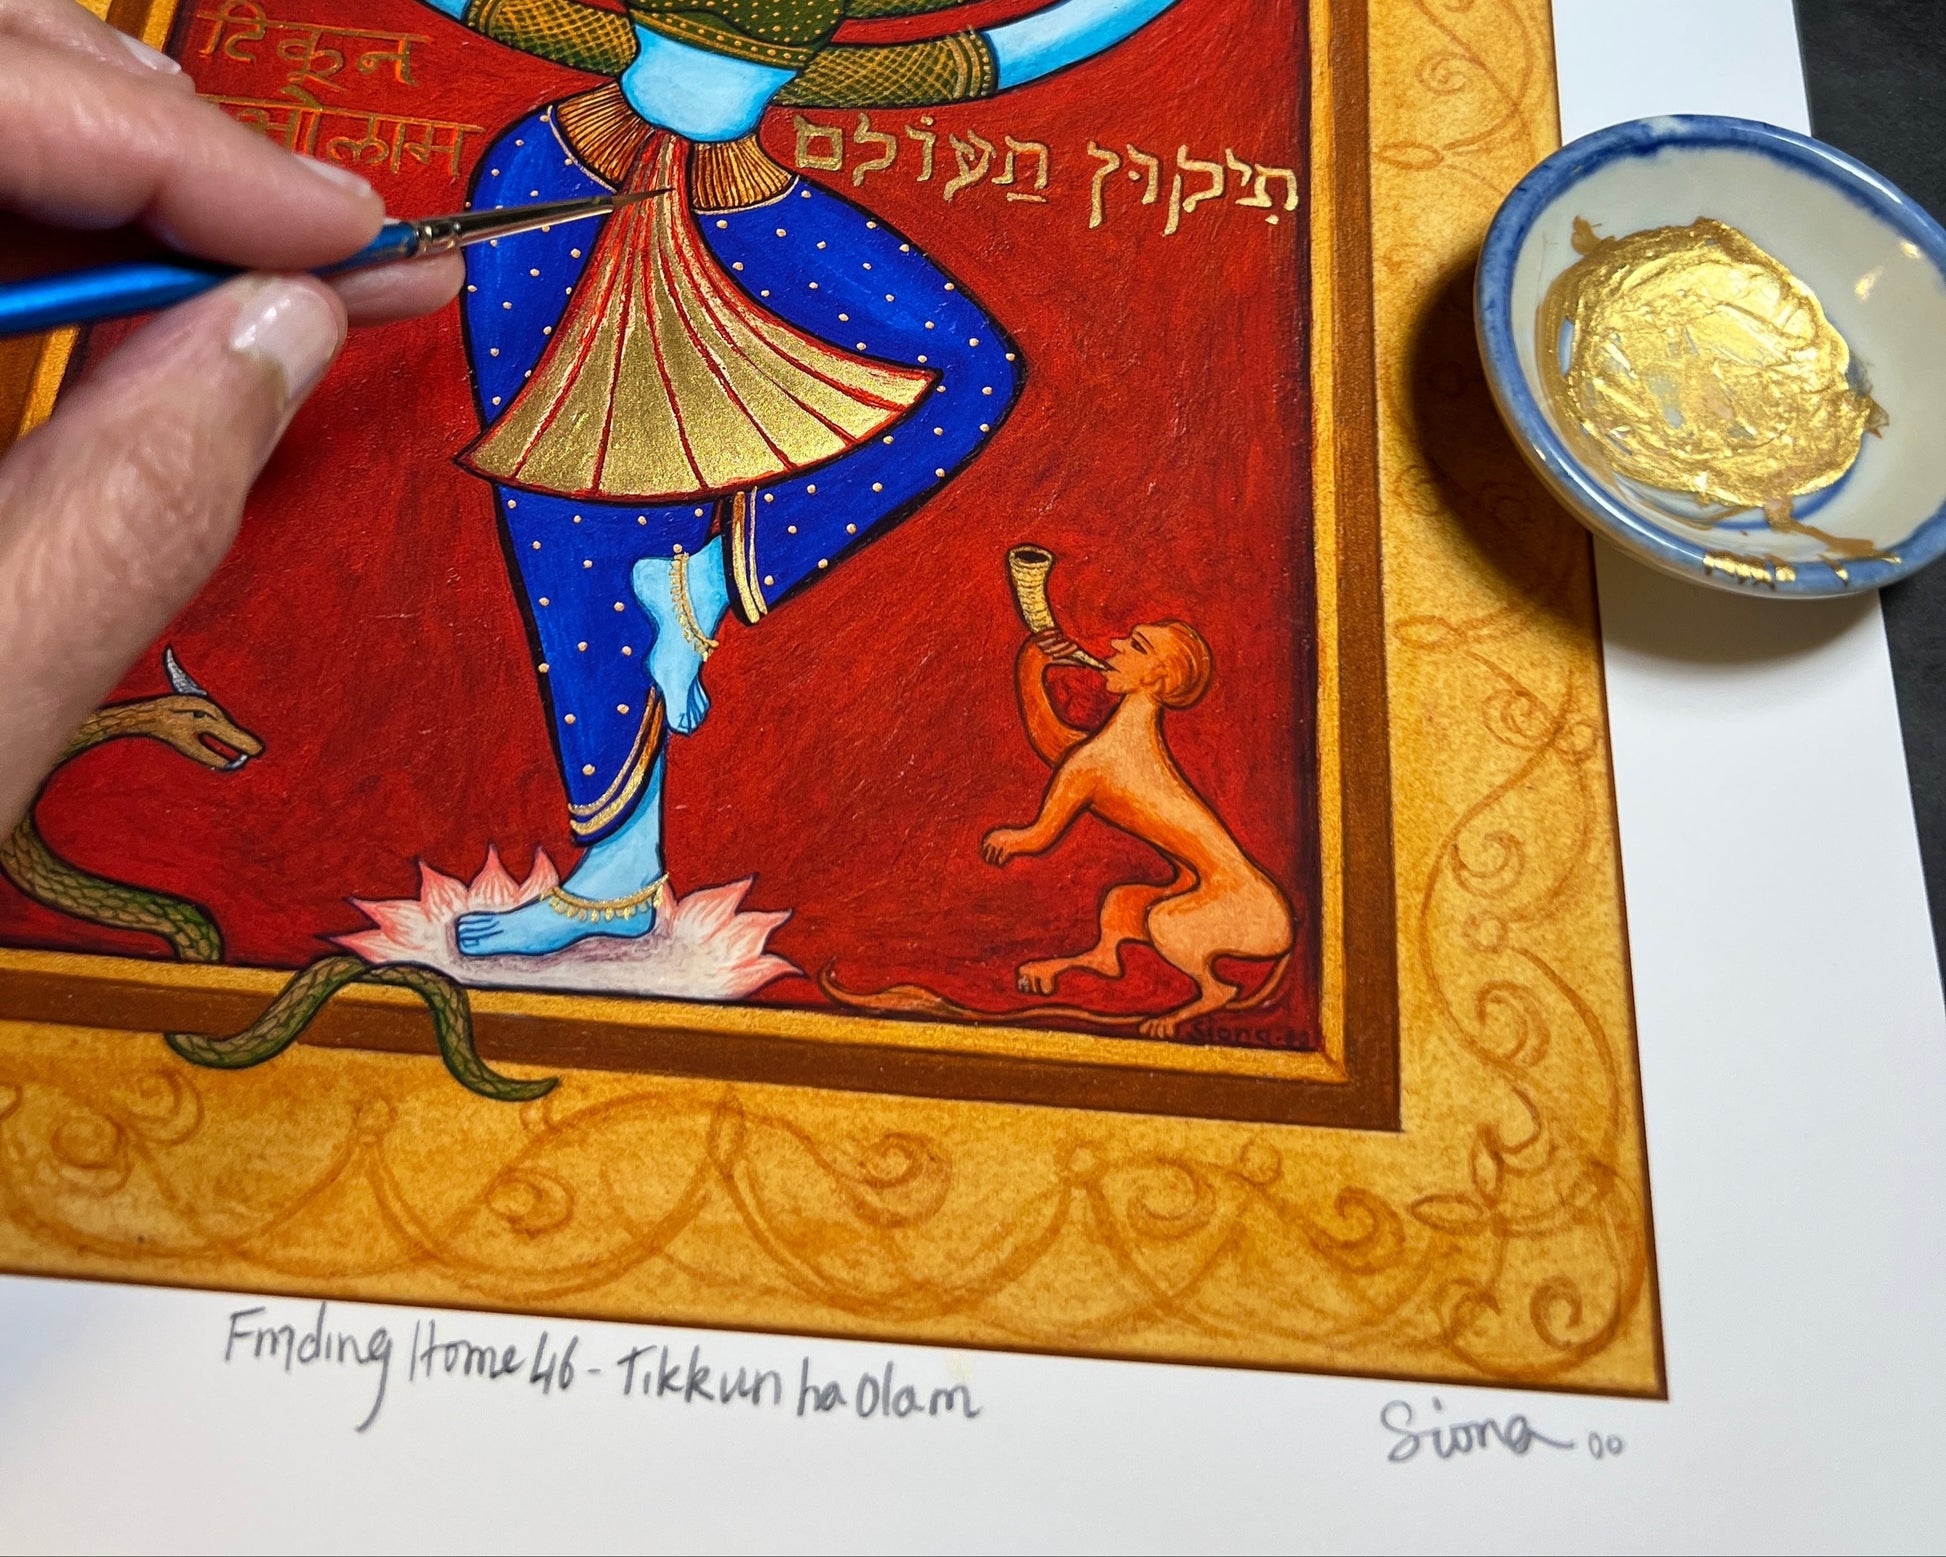 टिकून
ओलाम
תִיקוּן תַעוֹלם
Siona-00
Finding Home 46 - Tikkun ha Olam
Siona 00